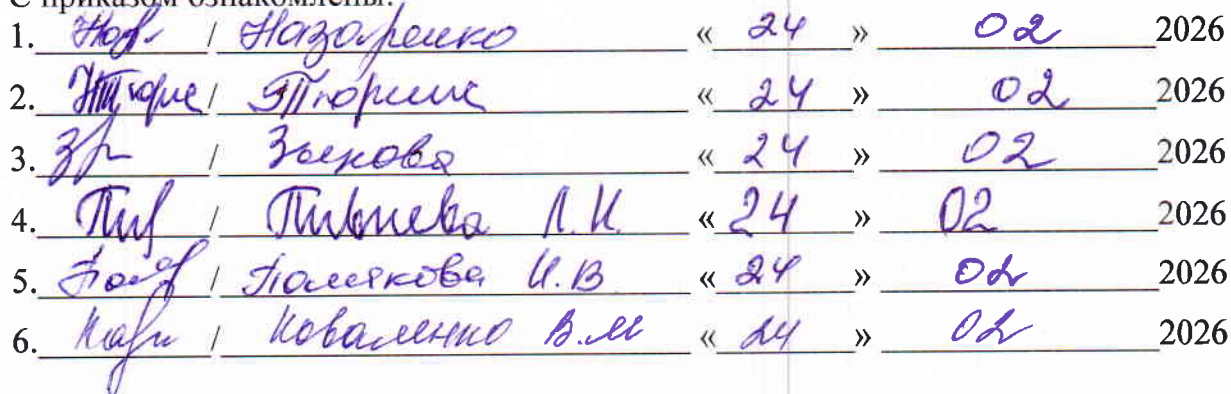 С приказом ознакомлены:
1. / Назаренко « 24 » 02 2026
2. / « 24 » 02 2026
3. / Зыкова « 24 » 02 2026
4. Пив / Пивнева Л.И. « 24 » 02 2026
5. Поляк / Полякова И.В « 24 » 02 2026
6. / Коваленко В.М « 24 » 02 2026